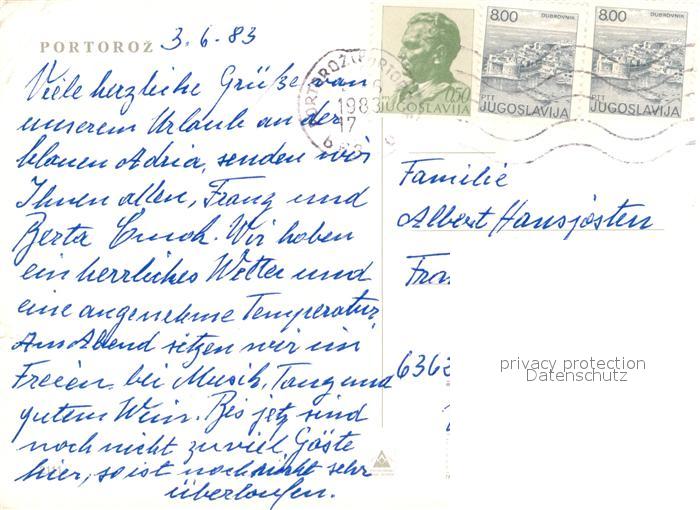 PORTOROŽ 3.6.83
Viele herzliche Grüße von
unserem Urlaub an der
blauen Adria, senden wir
Ihnen allen, Franz und
Berta
Wir haben
ein herrliches Wetter und
eine angenehme Temperatur.
Am Abend sitzen wir im
Freien bei Musik, Tanz und
gutem Wein. Bis jetz sind
noch nicht zuviel Gäste
hier, so ist noch nicht sehr
überlaufen.
0,50
JUGOSLAVIJA
8.00 DUBROVNIK
PTT
JUGOSLAVIJA
8.00 DUBROVNIK
PTT
JUGOSLAVIJA
1983
17
Familie
Albert Hansjosten
privacy protection
Datenschutz